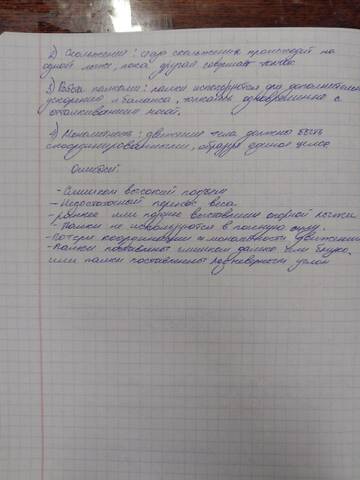 2) Скольжение: само скольжение происходит на
одной лыже, пока другая совершает толчок
3) Работа палками: палки используются для дополнительного
ускорения и баланса, толкаясь одновременно с
отталкиванием ногой.
4) Монолитность: движения тела должно быть
скоординированными, образуя единое целое
Ошибки
- Слишком высокий подъём
- Недостаточный перенос веса
- раннее или позднее выставление опорной лыжи
- Палки не используются в полную силу.
- Потеря координации и монолитности движений
- Палки поставлены слишком далеко или близко,
или палки поставлены под неверным углом